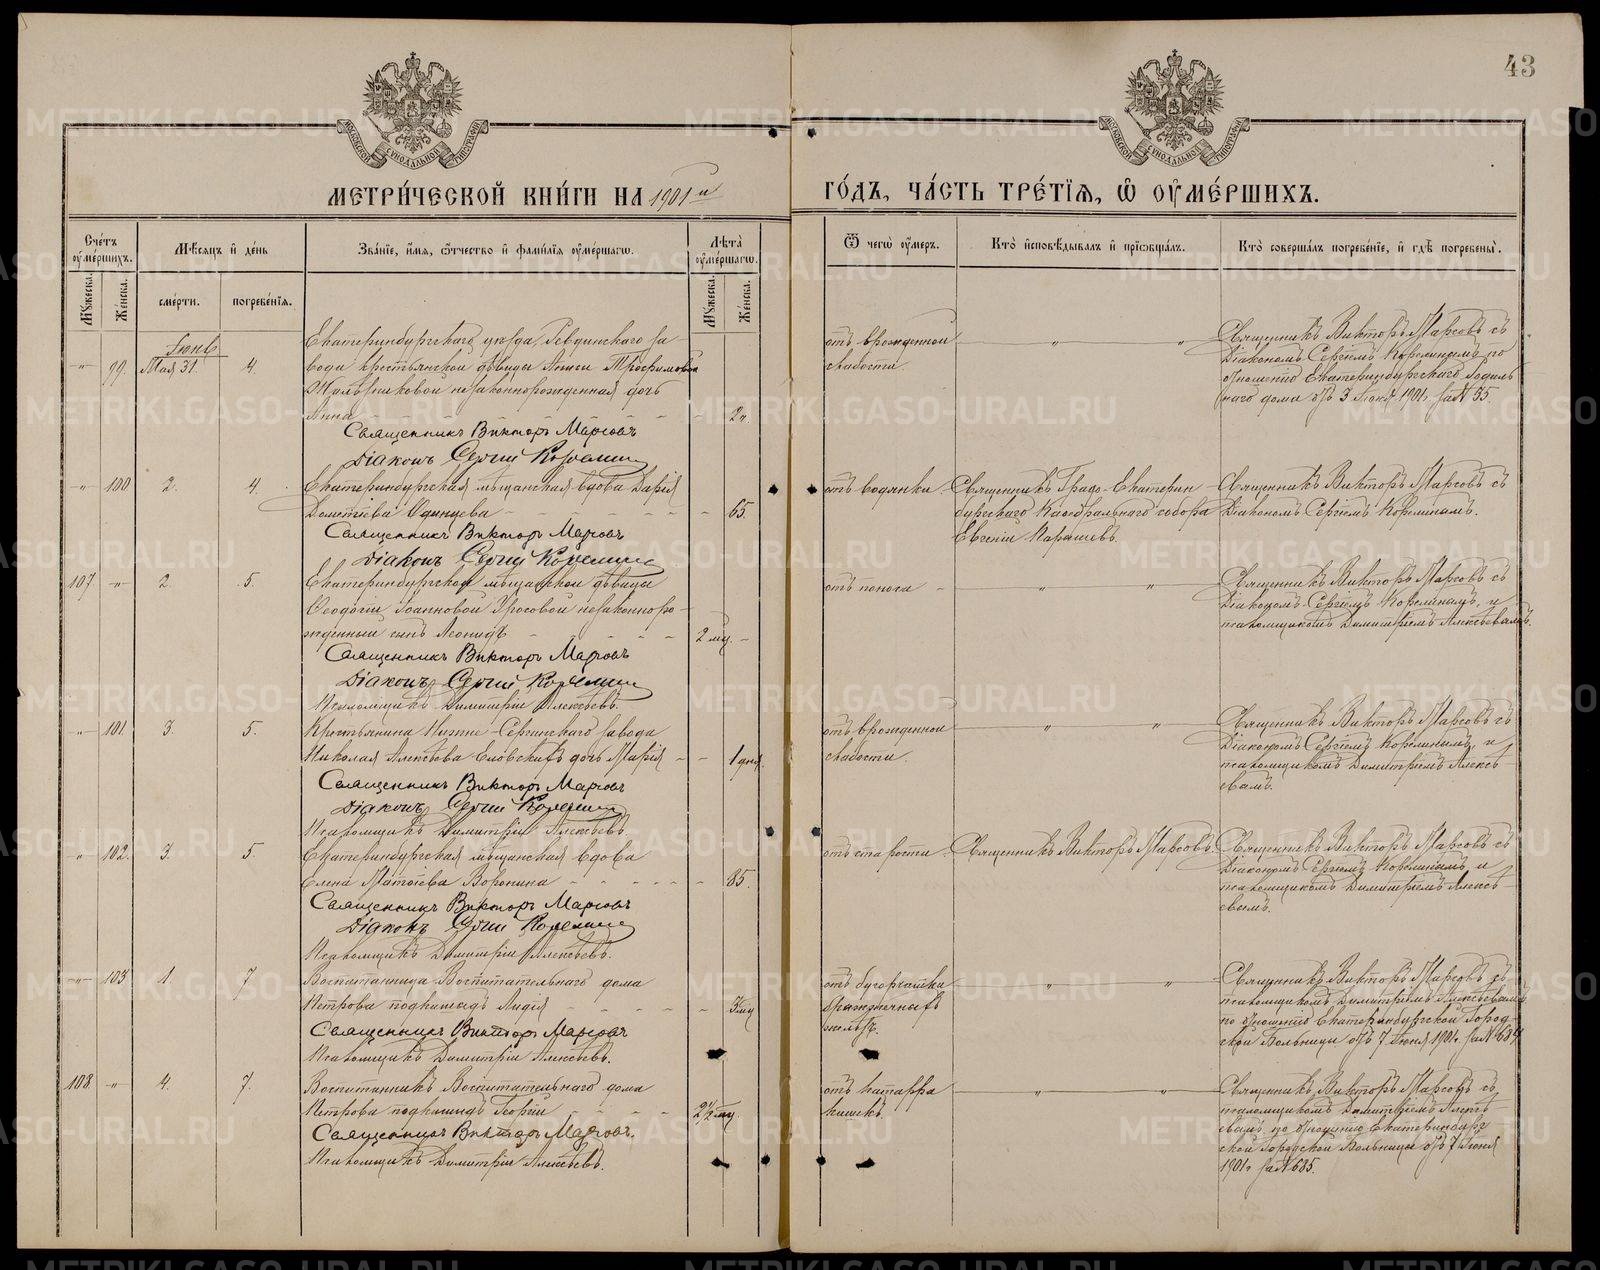 43
МЕТРИ́ЧЕСКОЙ КНИ́ГИ НА 1901й
ГО́ДЪ, ЧА́СТЬ ТРЕ́ТІѦ, Ѿ ОУМЕ́РШИХЪ.
Сче́тъ оуме́ршихъ.
Мꙋжеска.
Же́нска.
Мѣ́сяцъ и де́нь
сме́рти.
погребе́нїя.
Зва́нїе, и́мя, ѻ҆тчество и фами́лїя оуме́ршагѡ.
Лѣ́та оуме́ршагѡ.
Мꙋжеска.
Же́нска.
Ѿ чегѡ̀ оу́меръ.
Кто̀ и҆сповѣ́дывалъ и прїѡбща́лъ.
Кто̀ соверша́лъ погребе́нїе, и гдѣ̀ погребены̀.
Іюнь
99. Мая 31. 4.
Екатеринбургскаго уѣзда, Ревдинскаго за
вода крестьянской дѣвицы Трофимовой
незаконнорожденная дочь
Анна 2
Священникъ Викторъ Марсовъ
Діаконъ Сергій Корелинъ
отъ врожденной
слабости.
Священникъ Викторъ Марсовъ съ
Діакономъ Сергіемъ Корелинымъ по
отношенію Екатеринбургскаго Родиль
наго дома отъ 3 Іюня 1901г за № 55
100 2. 4.
Екатеринбургская мѣщанская вдова Дарія
Дометіева Одинцева 65.
Священникъ Викторъ Марсовъ
Діаконъ Сергій Корелинъ
отъ водянки
Священникъ Градо-Екатерин
бургскаго Кафедральнаго собора
Евгеній
Священникъ Викторъ Марсовъ съ
Діакономъ Сергіемъ Корелинымъ.
107 2. 5.
Екатеринбургской мѣщанской дѣвицы
Феодосіи Іоанновой незаконноро-
жденный сынъ Леонидъ 2 мц.
Священникъ Викторъ Марсовъ
Діаконъ Сергій Корелинъ
Псаломщикъ Димитрій Алексѣевъ.
отъ поноса
Священникъ Викторъ Марсовъ съ
Діакономъ Сергіемъ Корелинымъ, и
псаломщикомъ Димитріемъ Алексѣевымъ.
101. 3. 5.
Крестьянина Нижне-Сергинскаго завода
Николая Алексѣева дочь Марія 1 дня.
Священникъ Викторъ Марсовъ
Діаконъ Сергій Корелинъ
Псаломщикъ Димитрій Алексѣевъ.
отъ врожденной
слабости.
Священникъ Викторъ Марсовъ съ
Діакономъ Сергіемъ Корелинымъ, и
псаломщикомъ Димитріемъ Алексѣ-
евымъ.
102. 3. 5.
Екатеринбургская мѣщанская вдова
Елена Матѳіева Воронина 85.
Священникъ Викторъ Марсовъ
Діаконъ Сергій Корелинъ
Псаломщикъ Димитрій Алексѣевъ.
отъ старости
Священникъ Викторъ Марсовъ.
Священникъ Викторъ Марсовъ съ
Діакономъ Сергіемъ Корелинымъ и
псаломщикомъ Димитріемъ Алексѣ-
евымъ.
103 1. 7.
Воспитанница Воспитательнаго дома
Петрова подкидышъ Лидія мц
Священникъ Викторъ Марсовъ
Псаломщикъ Димитрій Алексѣевъ.
отъ бугорчатки
брызжечныхъ
железъ.
Священникъ Викторъ Марсовъ съ
псаломщикомъ Димитріемъ Алексѣевымъ
по отношенію Екатеринбургской Город-
ской Больницы отъ 7 Іюня 1901г за № 684
108. 4. 7.
Воспитанникъ Воспитательнаго дома
Петрова подкидышъ Георгій 2½ мц.
Священникъ Викторъ Марсовъ.
Псаломщикъ Димитрій Алексѣевъ.
отъ катарра
кишекъ
Священникъ Викторъ Марсовъ съ
псаломщикомъ Димитріемъ Алексѣ-
евымъ по отношенію Екатеринбург
ской Городской Больницы отъ 7 Іюня
1901г за № 685.
METRIKI.GASO-URAL.RU